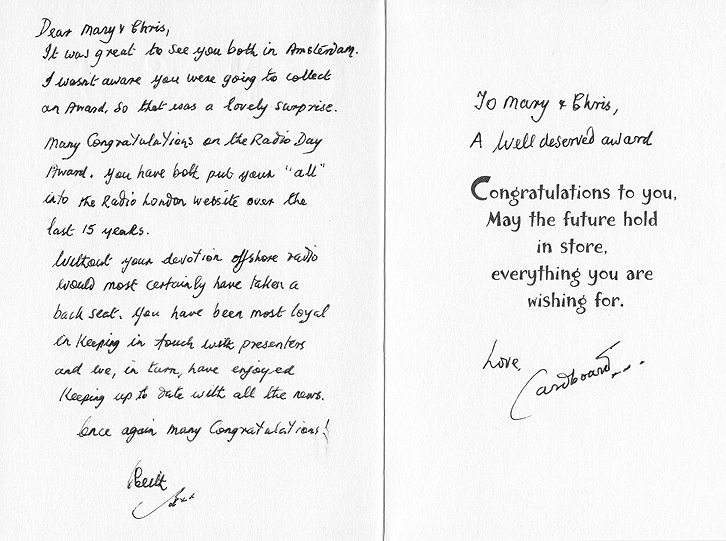 Dear Mary & Chris,
It was great to see you both in Amsterdam.
I wasn't aware you were going to collect
an Award, so that was a lovely surprise.
Many Congratulations on the Radio Day
Award. You have both put your "all"
into the Radio London website over the
last 15 years.
Without your devotion offshore radio
would most certainly have taken a
back seat. You have been most loyal
in keeping in touch with presenters
and we, in turn, have enjoyed
keeping up to date with all the news.
Once again Many Congratulations!
Keith
xxx
To Mary & Chris,
A Well deserved award
Congratulations to you,
May the future hold
in store,
everything you are
wishing for.
Love,
Cardboard...